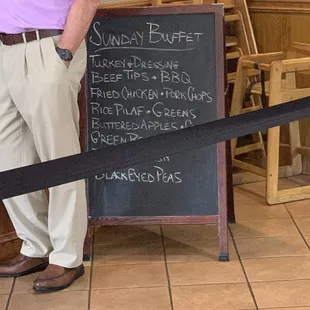 Sunday Buffet
Turkey & Dressing
Beef Tips • BBQ
Fried Chicken • Pork Chops
Rice Pilaf • Greens
Buttered Apples •
Green
Black Eyed Peas